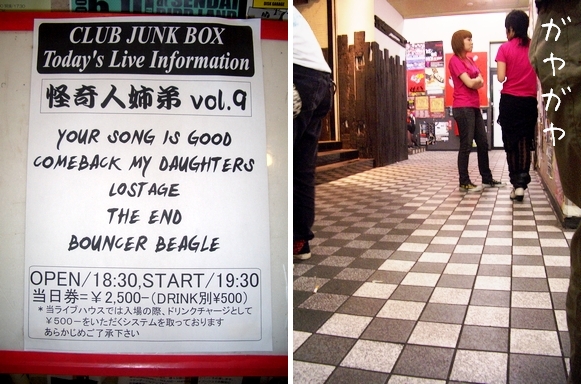 CLUB JUNK BOX
Today's Live Information
怪奇人姉弟 vol.9
YOUR SONG IS GOOD
COMEBACK MY DAUGHTERS
LOSTAGE
THE END
BOUNCER BEAGLE
OPEN/18:30,START/19:30
当日券=¥2,500-(DRINK別¥500)
*当ライブハウスでは入場の際、ドリンクチャージとして
¥500-をいただくシステムを取っております
あらかじめご了承下さい
ガヤガヤ